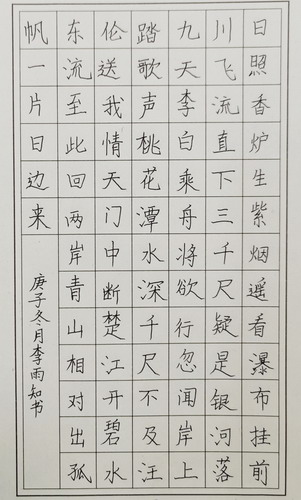 日照香炉生紫烟遥看瀑布挂前
川飞流直下三千尺疑是银河落
九天李白乘舟将欲行忽闻岸上
踏歌声桃花潭水深千尺不及汪
伦送我情天门中断楚江开碧水
东流至此回两岸青山相对出孤
帆一片日边来
庚子冬月李雨知书